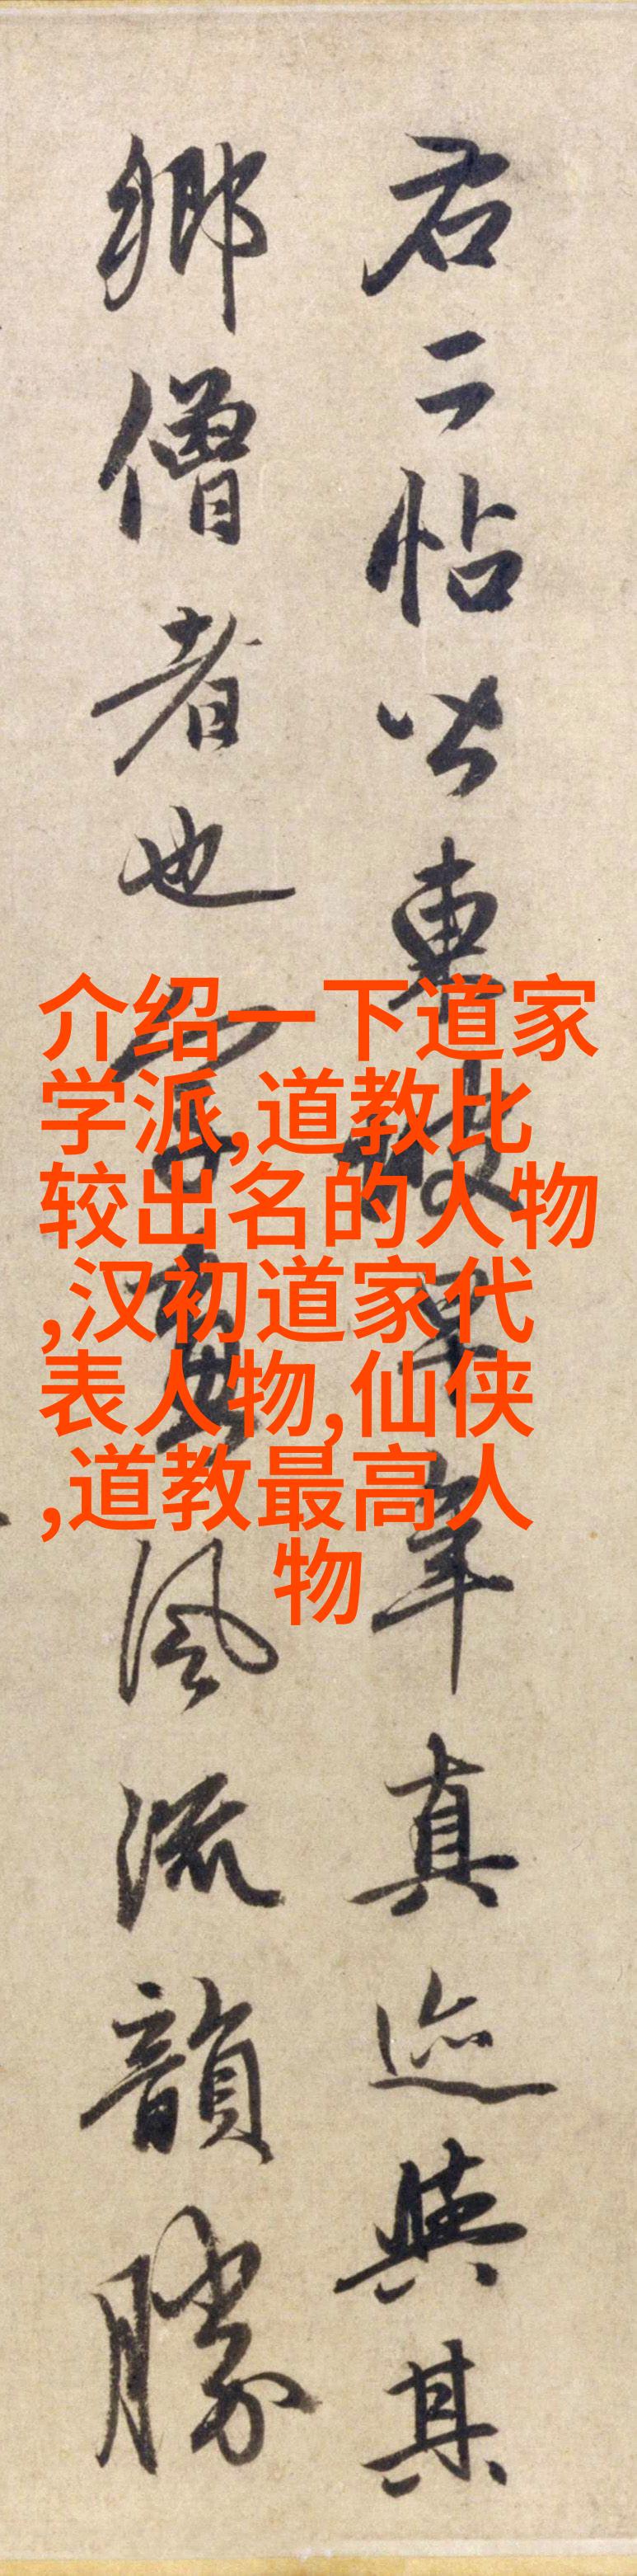 右二帖皆東坡早年真迹與其
鄉僧者也字畫風流韻勝
介绍一下道家
学派,道教比
较出名的人物
,汉初道家代
表人物,仙侠
,道教最高人
物